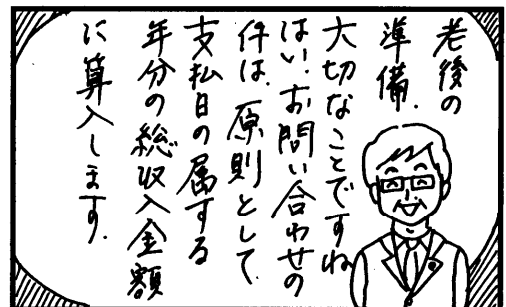 老後の
準備、
大切なことですね
はい、お問い合わせの
件は、原則として、
支払日の属する
年分の総収入金額
に算入します。